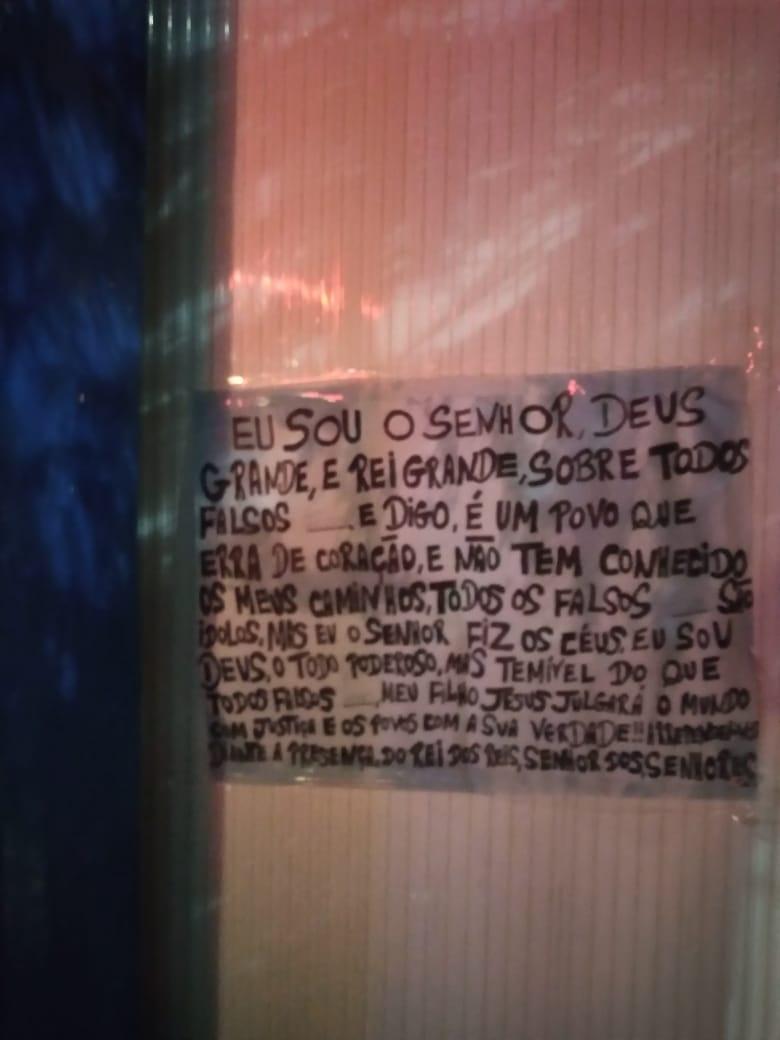 EU SOU O SENHOR, DEUS
GRANDE, E REI GRANDE, SOBRE TODOS
FALSOS ___. E DIGO, É UM POVO QUE
ERRA DE CORAÇÃO, E NÃO TEM CONHECIDO
OS MEUS CAMINHOS, TODOS OS FALSOS ___ SÃO
ÍDOLOS, MAS EU O SENHOR FIZ OS CÉUS, EU SOU
DEUS, O TODO PODEROSO, MAS TEMÍVEL DO QUE
TODOS FALSOS ___, MEU FILHO JESUS JULGARÁ O MUNDO
COM JUSTIÇA E OS POVOS COM A SUA VERDADE!!
DIANTE A PRESENÇA, DO REI DOS REIS, SENHOR DOS, SENHORES